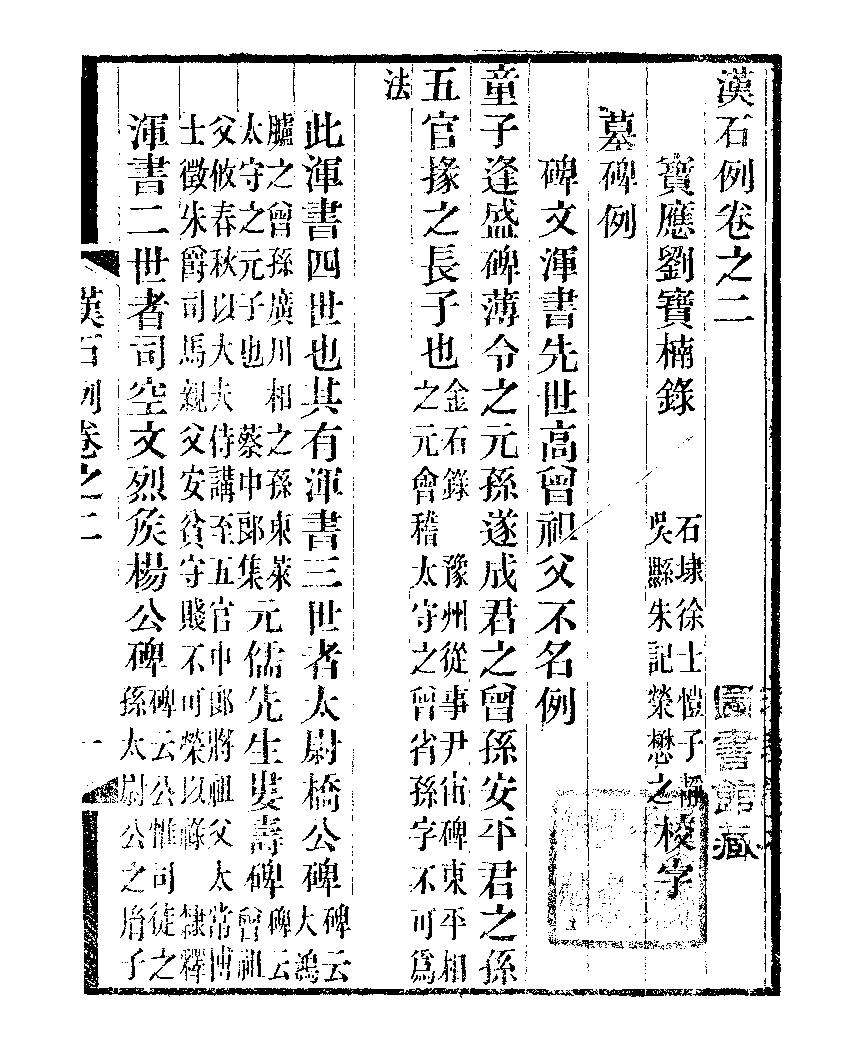 漢石例卷之二
寶應劉寶楠錄
石埭徐士愷子靜
吳縣朱記榮懋之
校字
墓碑例
碑文渾書先世高曾祖父不名例
童子逢盛碑薄令之元孫遂成君之曾孫安平君之孫
五官掾之長子也
金石錄 豫州從事尹宙碑東平相
之元會稽太守之曾省孫字不可爲
法
此渾書四世也其有渾書三世者太尉橋公碑
碑云
大鴻
臚之曾孫廣川相之孫東萊
太守之元子也 蔡中郎集
元儒先生婁壽碑
碑云
曾祖
父攸春秋以大夫侍講至五官中郎將祖父太常博
士徵朱爵司馬親父安貧守賤不可榮以祿 隸釋
渾書二世者司空文烈矦楊公碑
碑云公惟司徒之
孫太尉公之胤子
漢石例卷之二
一
圖書館藏